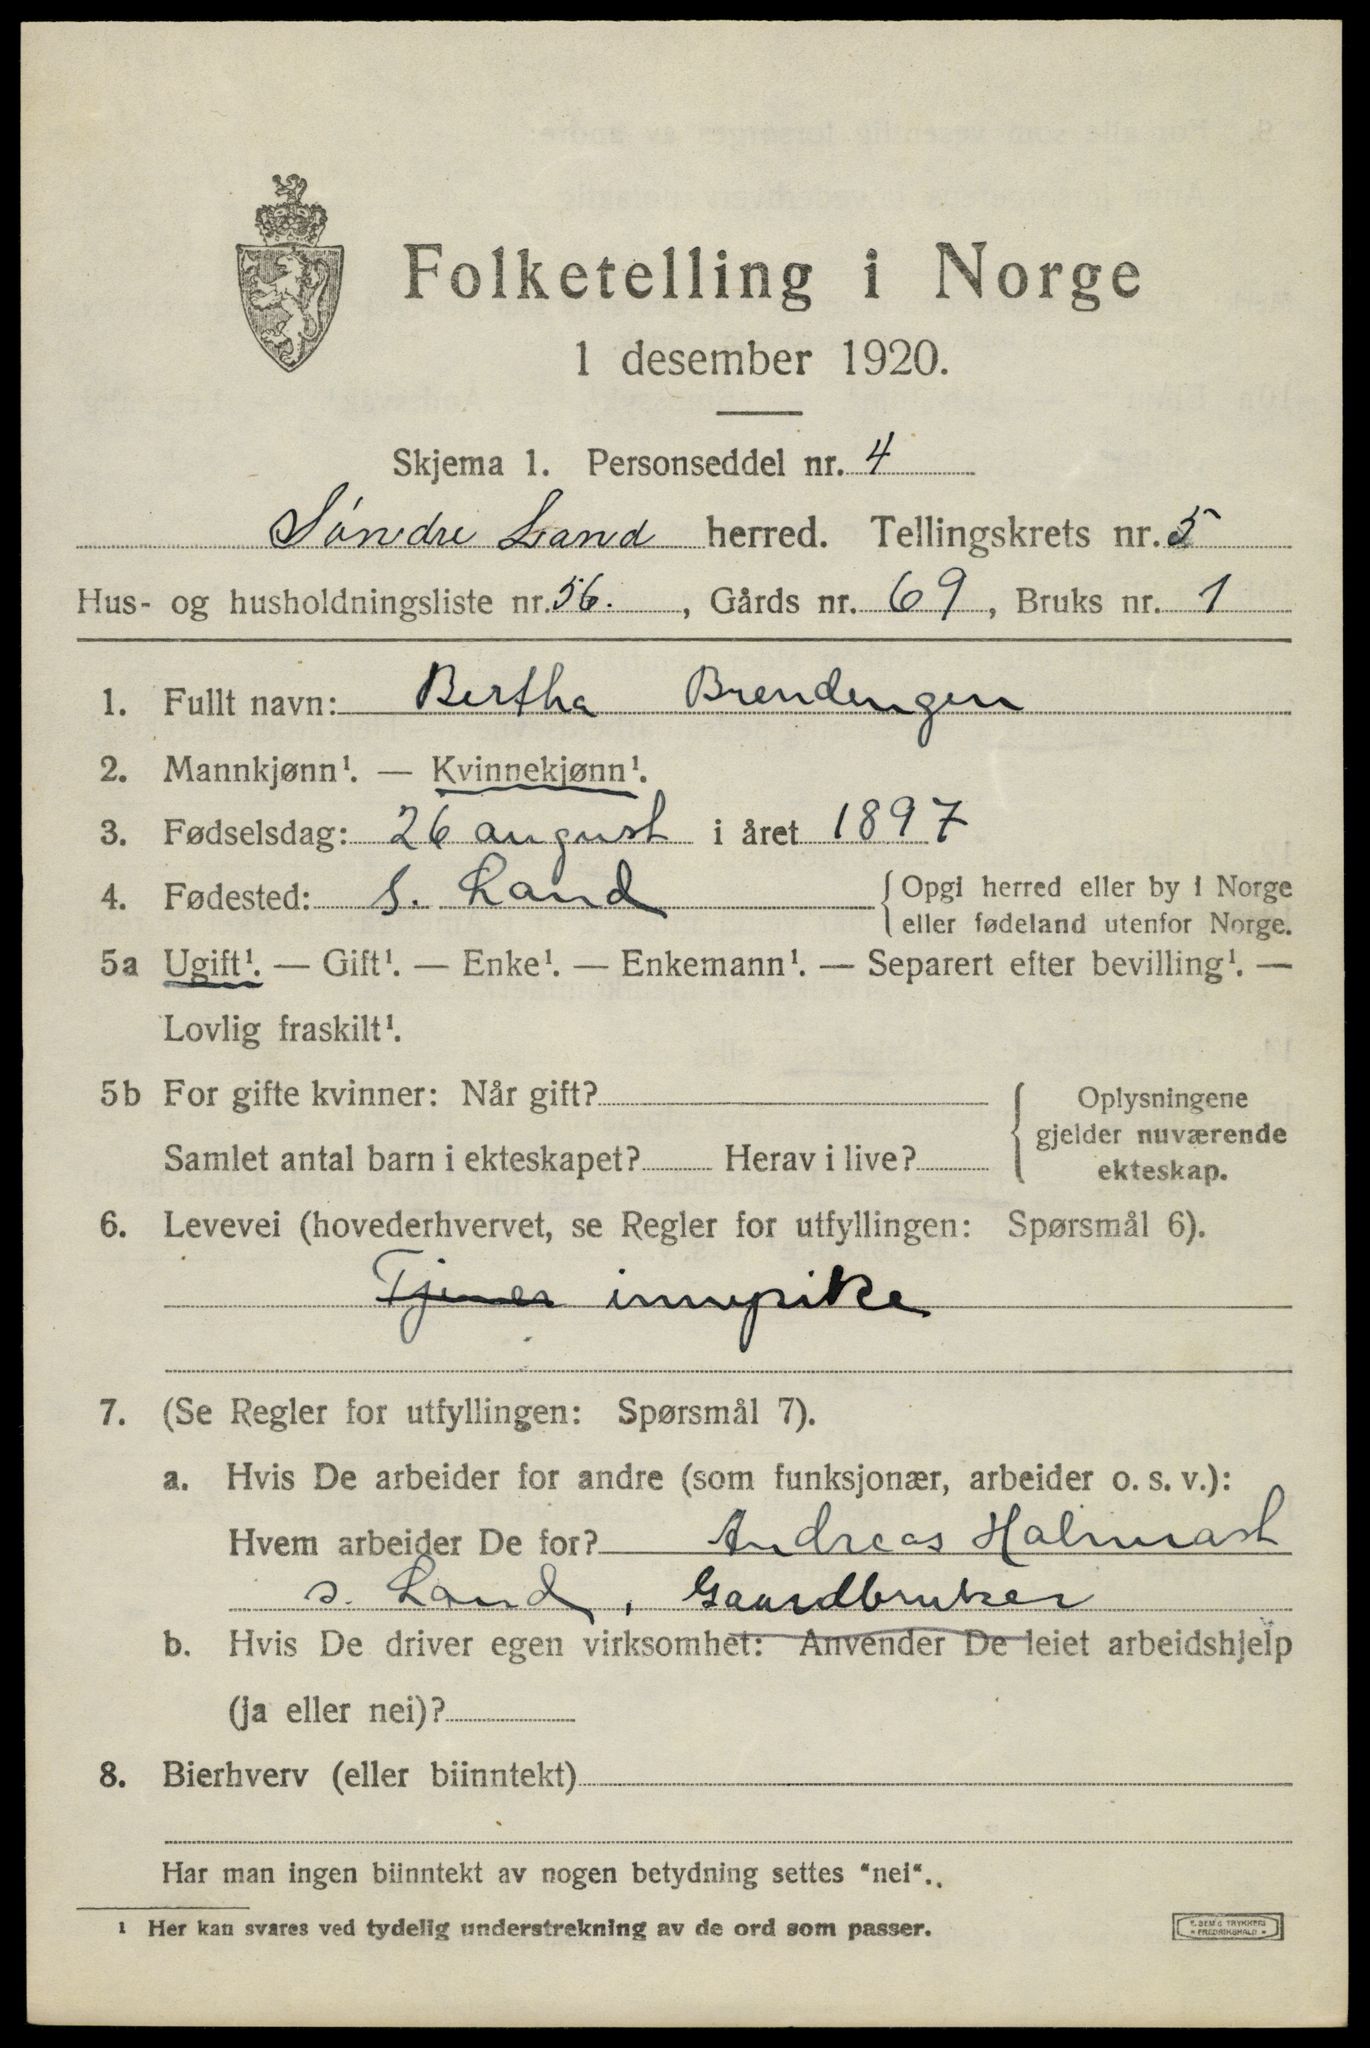 Folketelling i Norge
1 desember 1920.
Skjema 1. Personseddel nr. 4
Søndre Land herred. Tellingskrets nr. 5
Hus- og husholdningsliste nr. 56. , Gårds nr. 69 , Bruks nr. 1
1. Fullt navn: Bertha Brendengen
2. Mannkjønn¹. — Kvinnekjønn¹.
3. Fødselsdag: 26 august i året 1897
4. Fødested: S. Land { Opgi herred eller by i Norge
eller fødeland utenfor Norge.
5a Ugift¹. — Gift¹. — Enke¹. — Enkemann¹. — Separert efter bevilling¹. —
Lovlig fraskilt¹.
5b For gifte kvinner: Når gift? { Oplysningene
gjelder nuværende
Samlet antal barn i ekteskapet? Herav i live?
ekteskap.
6. Levevei (hovederhvervet, se Regler for utfyllingen: Spørsmål 6).
Tjener innepike
7. (Se Regler for utfyllingen: Spørsmål 7).
a. Hvis De arbeider for andre (som funksjonær, arbeider o. s. v.):
Hvem arbeider De for? Andreas Halmrast
s. Land, Gaardbruker
b. Hvis De driver egen virksomhet: Anvender De leiet arbeidshjelp
(ja eller nei)?
8. Bierhverv (eller biinntekt)
Har man ingen biinntekt av nogen betydning settes "nei"..
¹ Her kan svares ved tydelig understrekning av de ord som passer.
E. SEM'S TRYKKERI
* FREDRIKSHALD *